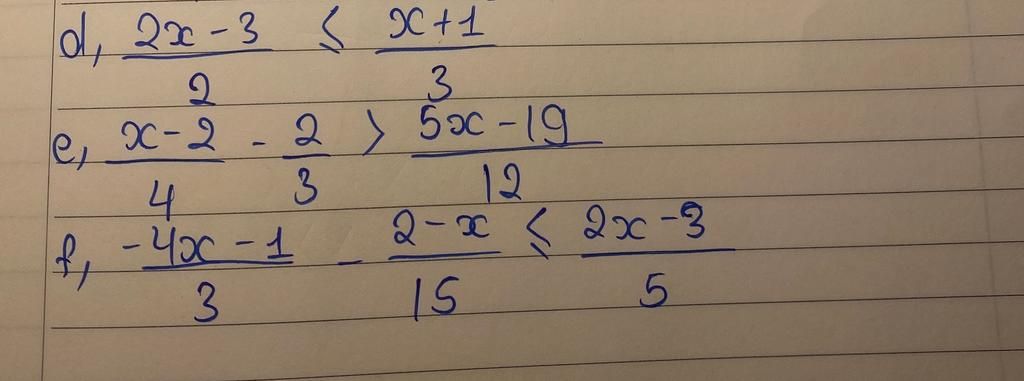 d, (2x - 3)/2 ≤ (x + 1)/3
e, (x - 2)/4 - 2/3 > (5x - 19)/12
f, (-4x - 1)/3 - (2 - x)/15 ≤ (2x - 3)/5